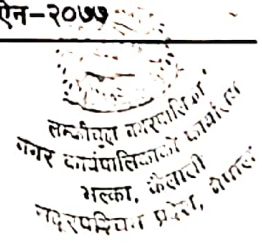 ऐन-२०७७
लम्कीचुहा नगरपालिका
नगर कार्यपालिकाको कार्यालय
भल्का, कैलाली
सुदूरपश्चिम प्रदेश, नेपाल